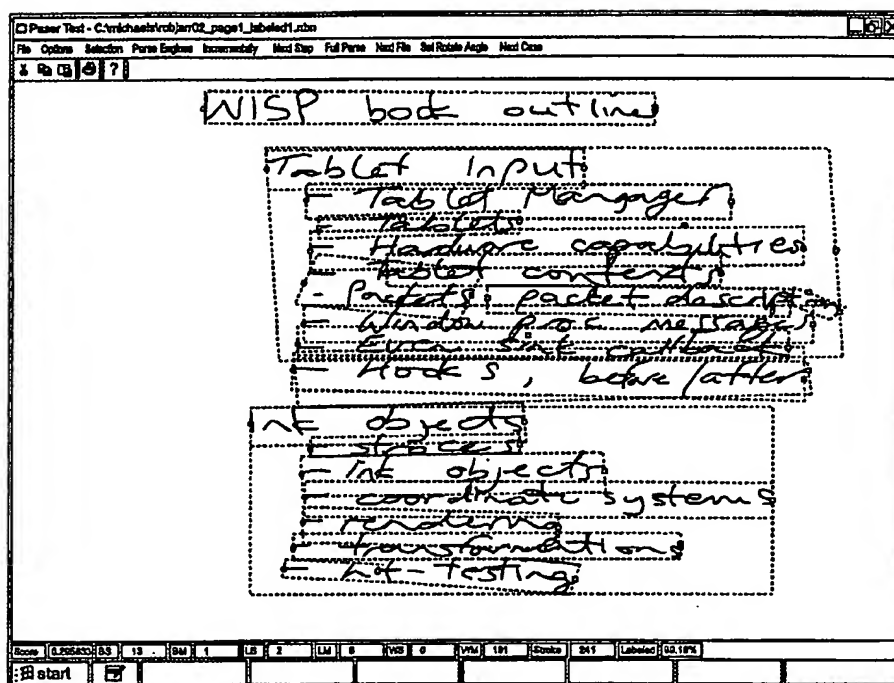 Paser Test - C:\michaels\robjarr02_page1_labeled1.nbn
File Options Selection Parse Engines Incrementally Next Step Full Parse Next File Set Rotate Angle Next Case
WISP book outline
Tablet Input
- Tablet Mangager
- Tablets
- Hardware capabilities
- Tablet contexts
- Packets, packet description
- Window proc messages
- Even sink callback
- Hooks, before/after
Ink objects
- strokes
- Ink objects
- coordinate systems
- rendering
- transformations
- hit-testing
Score SS 13 SM 1 LS 2 LM 6 WS 0 WM 191 Stroke 241 Labeled 99.18%
start